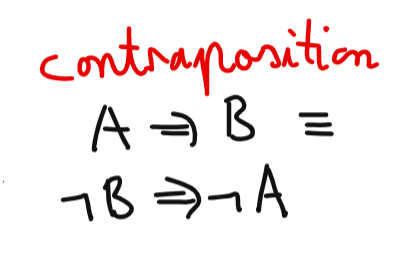 contraposition
A ⇒ B ≡
¬B ⇒ ¬A